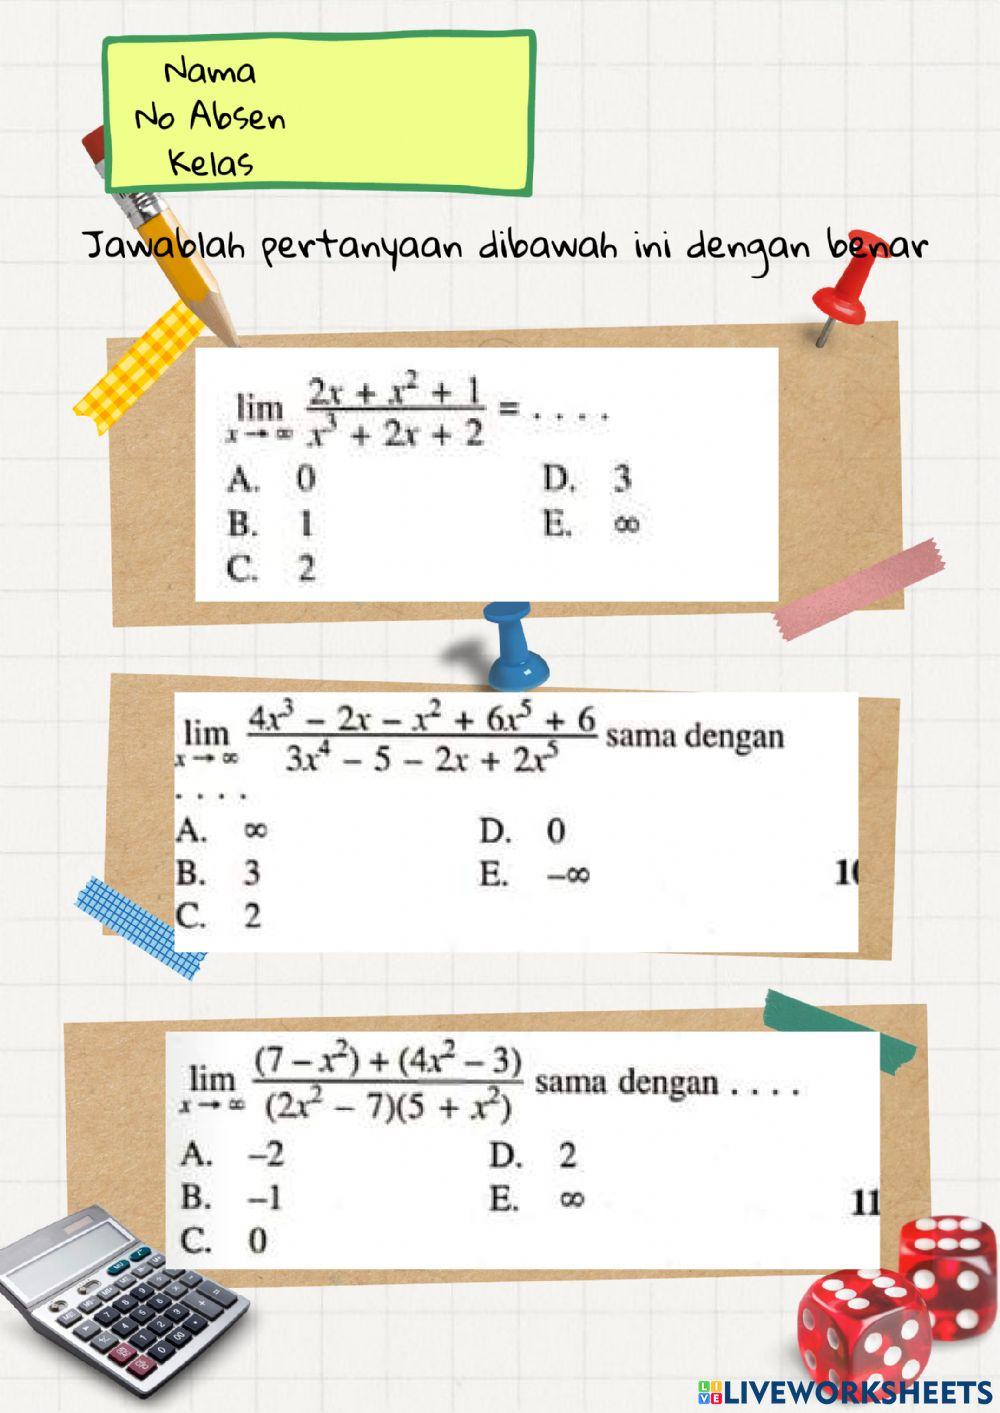 Nama
No Absen
Kelas
Jawablah pertanyaan dibawah ini dengan benar
lim x → ∞ (2x + x² + 1)/(x³ + 2x + 2) = . . . .
A. 0 D. 3
B. 1 E. ∞
C. 2
lim x → ∞ (4x³ − 2x − x² + 6x⁵ + 6)/(3x⁴ − 5 − 2x + 2x⁵) sama dengan
. . . .
A. ∞ D. 0
B. 3 E. −∞
C. 2
lim x → ∞ ((7 − x²) + (4x² − 3))/((2x² − 7)(5 + x²)) sama dengan . . . .
A. −2 D. 2
B. −1 E. ∞ 11
C. 0
LIVEWORKSHEETS